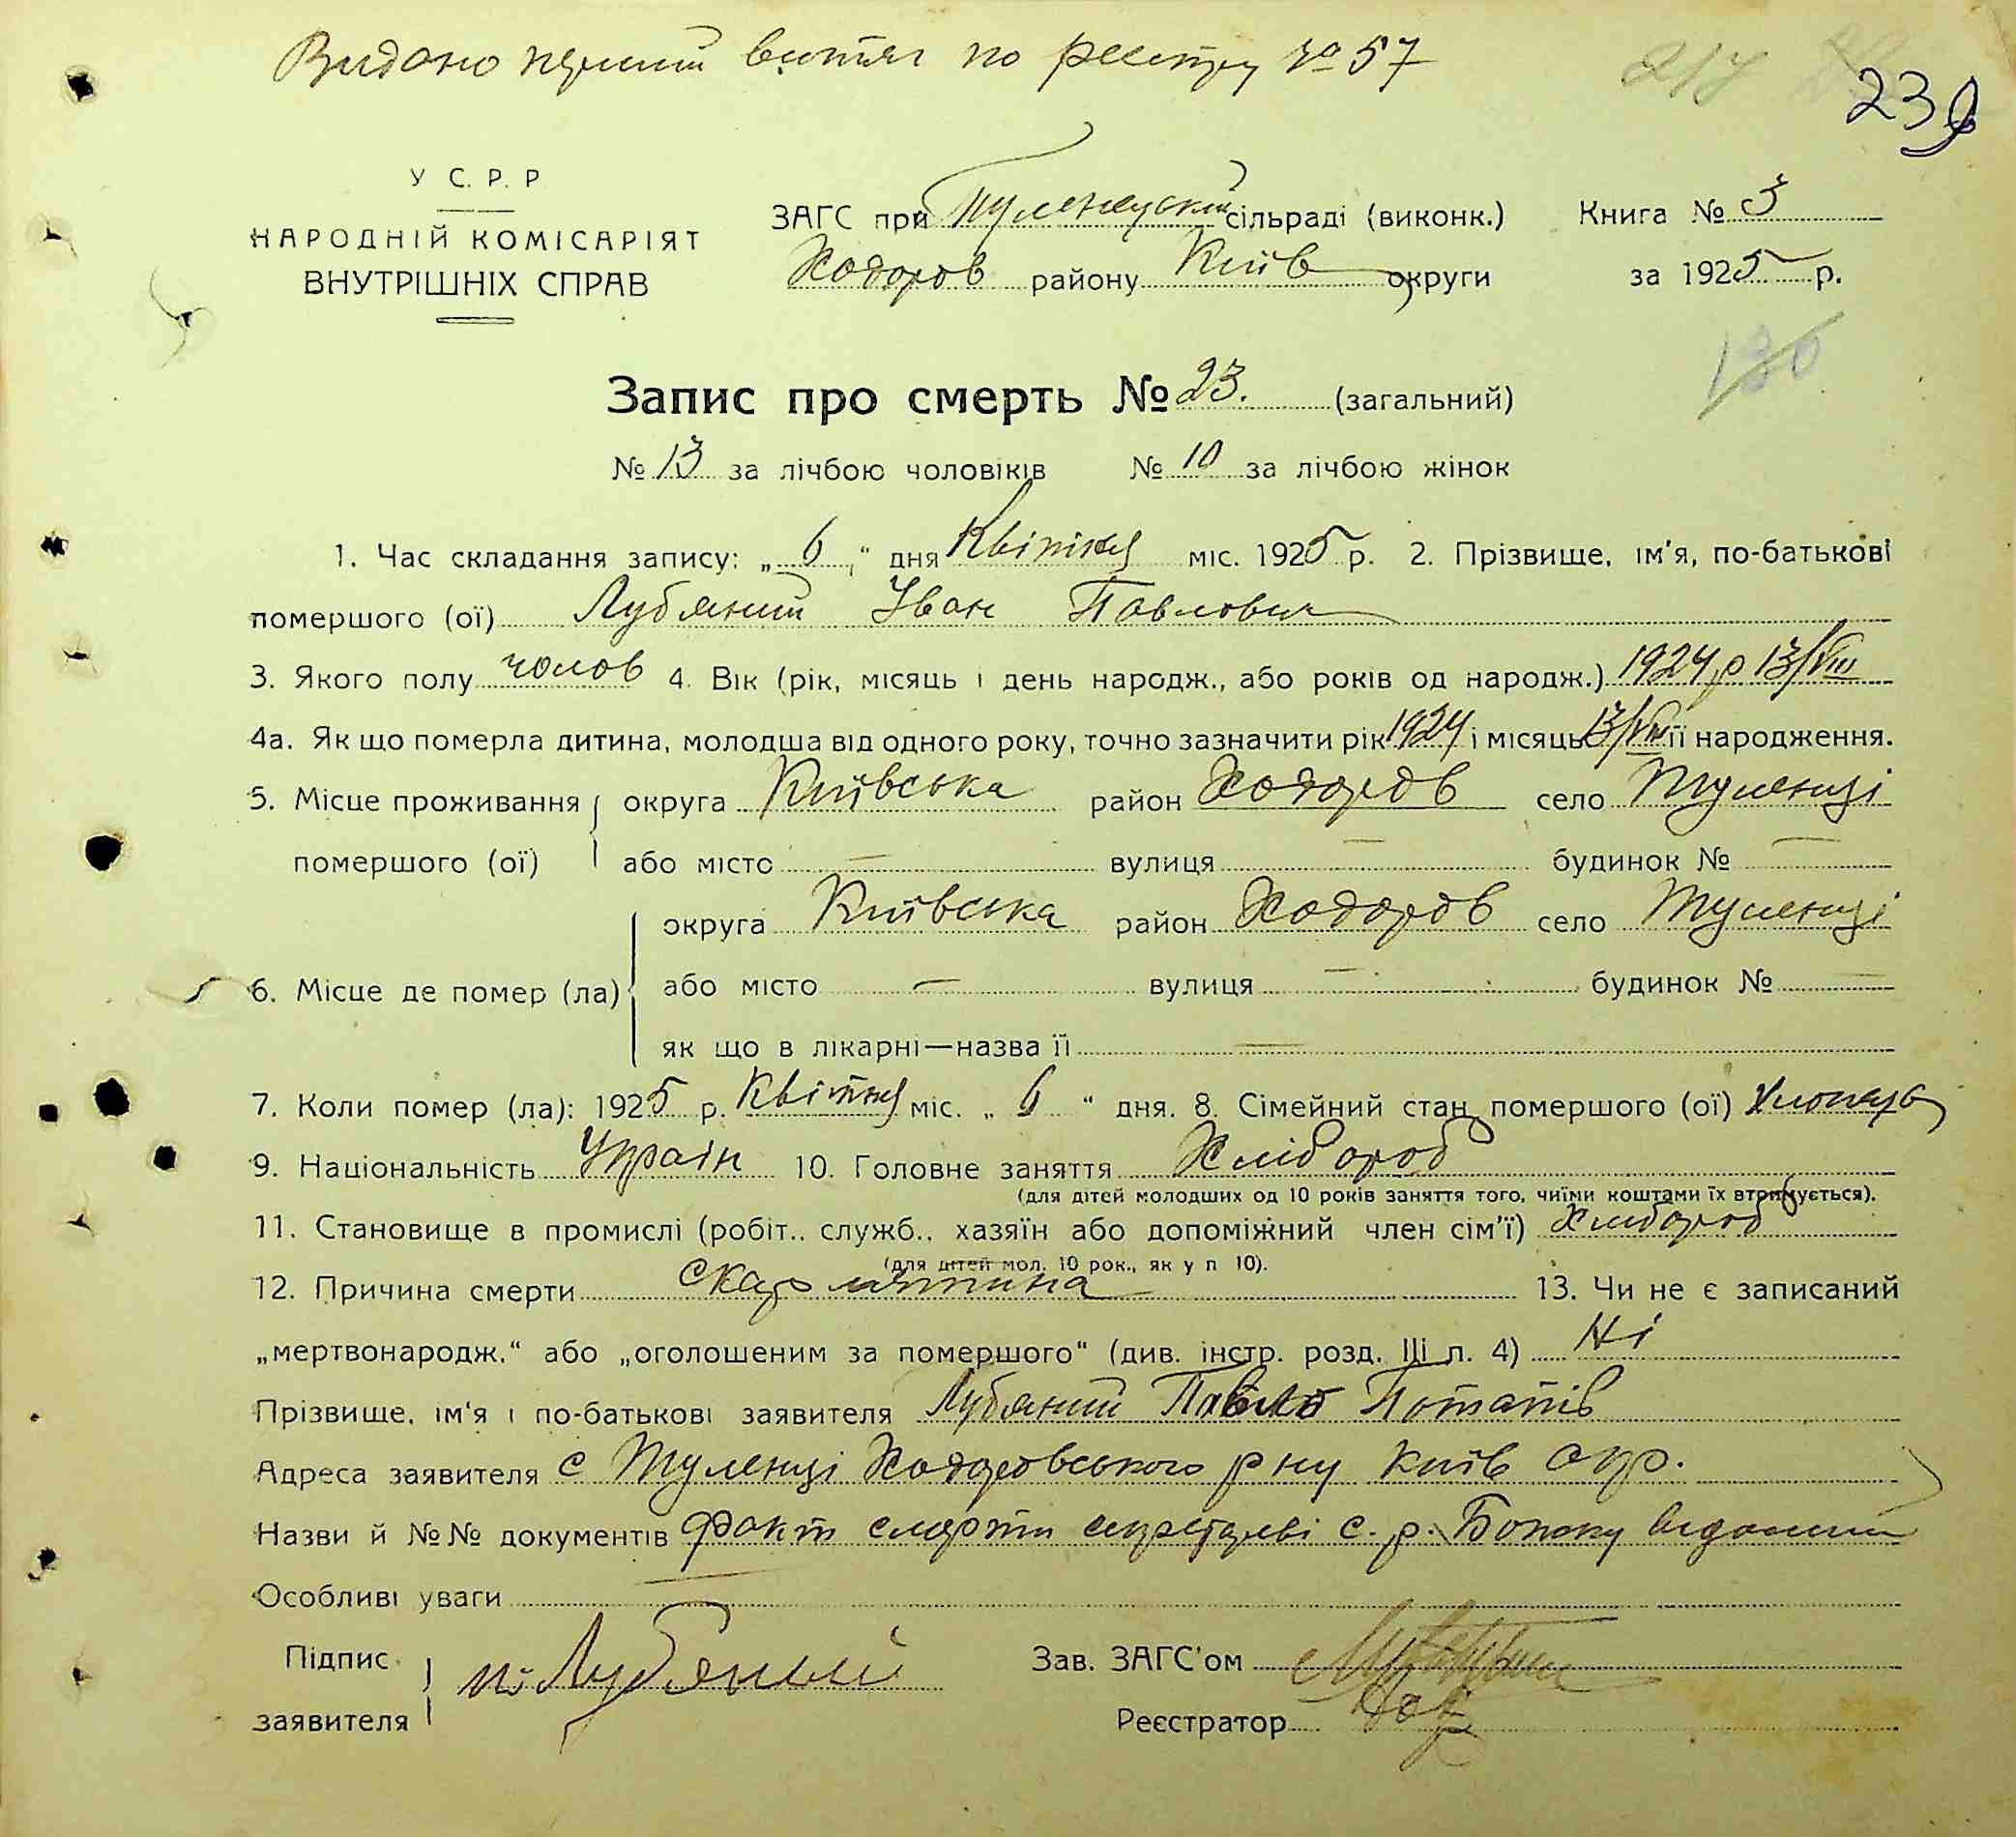 Видано перший витяг по реєстру № 57
217
239
У С. Р. Р
НАРОДНІЙ КОМІСАРІЯТ
ВНУТРІШНІХ СПРАВ
ЗАГС при Туленецькій сільраді (виконк.)
Ходоров району Київ округи
Книга № 3
за 1925 р.
130
Запис про смерть № 23. (загальний)
№ 13 за лічбою чоловіків № 10 за лічбою жінок
1. Час складання запису: „ 6 “ дня Квітня міс. 1925 р. 2. Прізвище, ім'я, по-батькові
помершого (ої) Лубяний Іван Павлович
3. Якого полу чолов 4. Вік (рік, місяць і день народж., або років од народж.) 1924 р 13/VIII
4а. Як що померла дитина, молодша від одного року, точно зазначити рік 1924 і місяць 13/VIII її народження.
5. Місце проживання помершого (ої) округа Київська район Ходоров село Туленці
або місто — вулиця — будинок № —
6. Місце де помер (ла) округа Київська район Ходоров село Туленці
або місто — вулиця — будинок № —
як що в лікарні—назва її —
7. Коли помер (ла): 1925 р. Квітня міс. „ 6 “ дня. 8. Сімейний стан помершого (ої)
9. Національність Україн 10. Головне заняття Хлібороб
(для дітей молодших од 10 років заняття того, чиїми коштами їх втримується).
11. Становище в промислі (робіт.. служб.. хазяїн або допоміжний член сім'ї) Хлібороб
(для дітей мол. 10 рок., як у п 10).
12. Причина смерти скарлятина 13. Чи не є записаний
„мертвонародж.“ або „оголошеним за помершого“ (див. інстр. розд. III л. 4) Ні
Прізвище, ім'я і по-батькові заявителя Лубяний Павло Потапів
Адреса заявителя с Туленці Ходоровського р ну Київ окр.
Назви й №№ документів Факт смерти секретареві с. р. відомий
Особливі уваги
Підпис заявителя П. Лубяний
Зав. ЗАГС'ом
Реєстратор